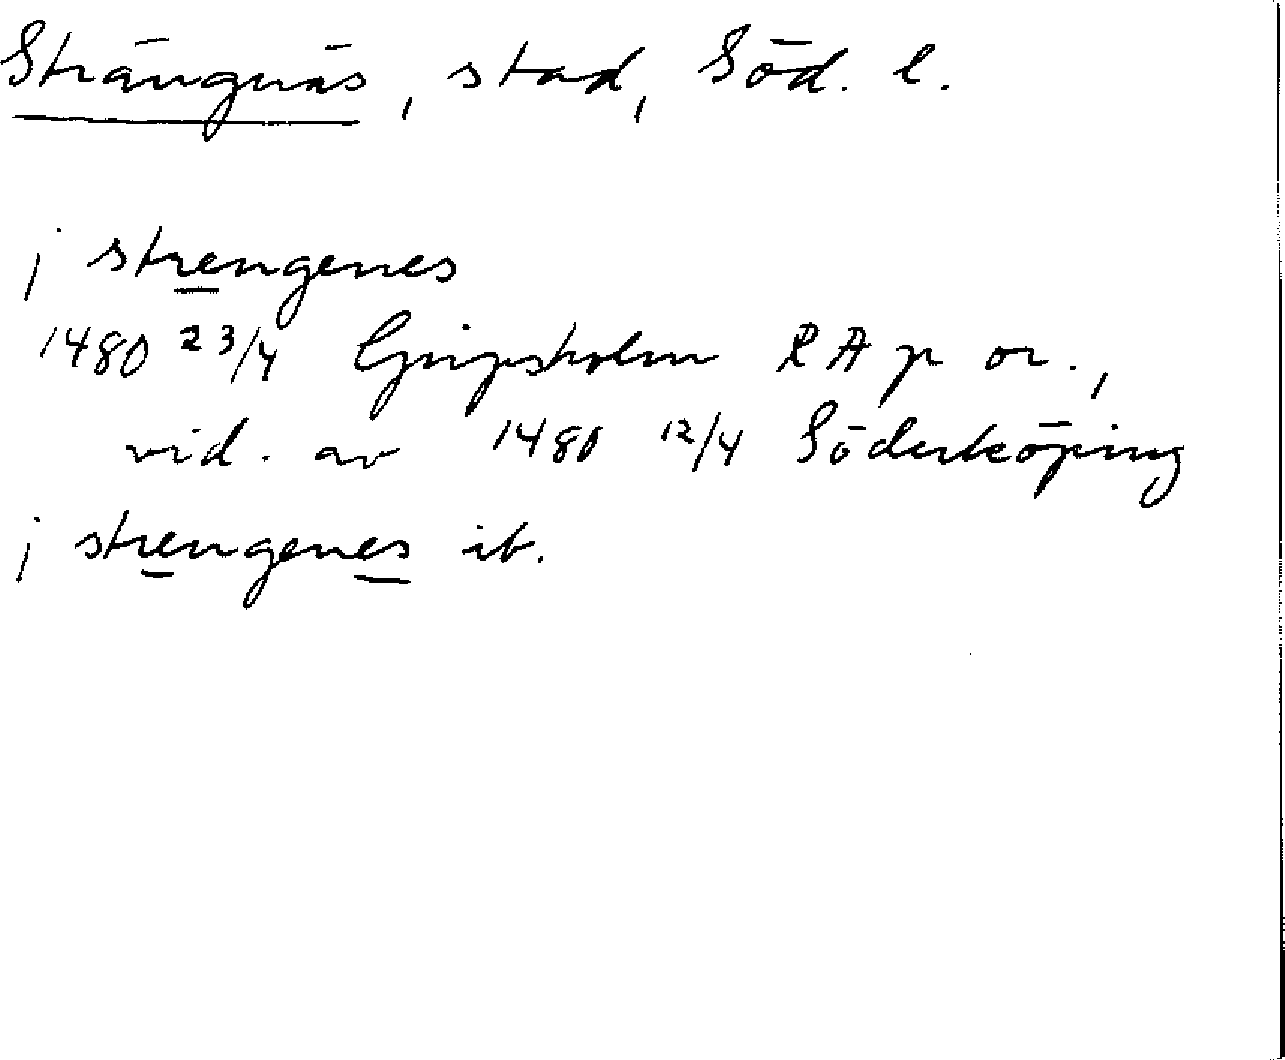 Strängnäs, stad, Söd. l.
j strengenes
1480 23/4 Gripsholm RAp or.,
vid. av 1480 12/4 Söderköping
j strengenes ib.